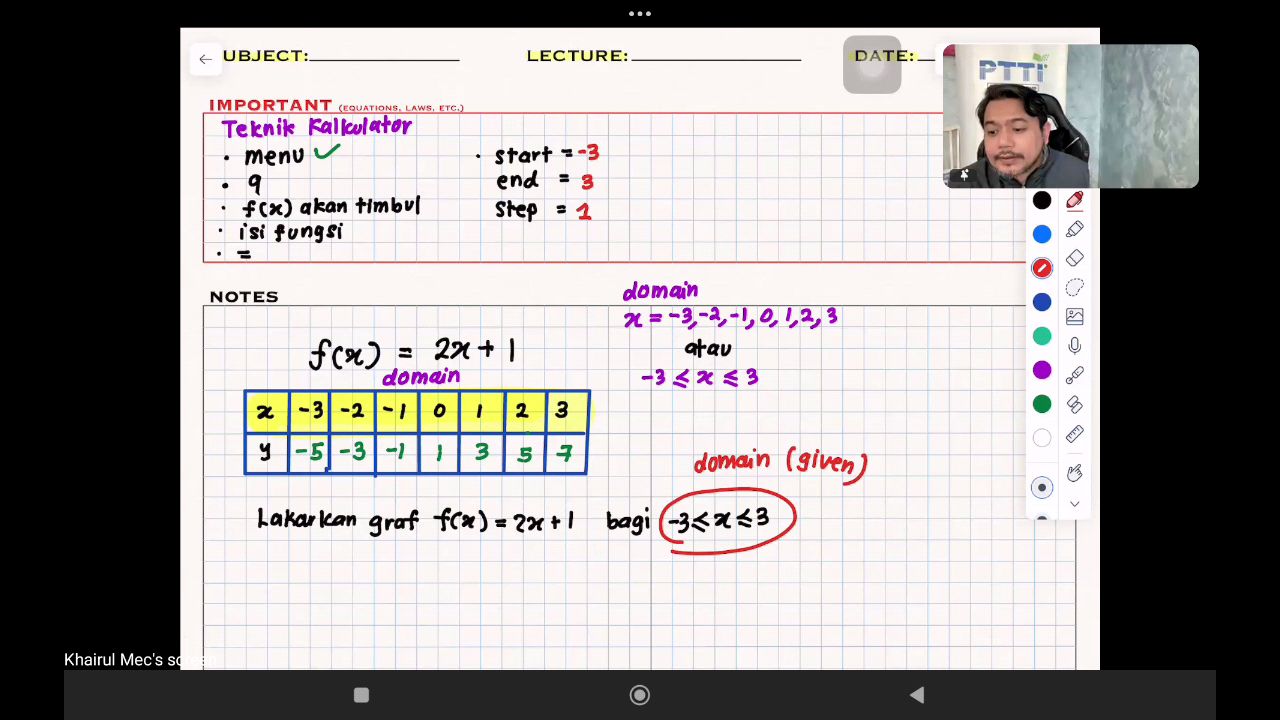 UBJECT:
LECTURE:
DATE:
PTTI
IMPORTANT (EQUATIONS, LAWS, ETC.)
Teknik Kalkulator
• menu ✓
• 9
• f(x) akan timbul
• isi fungsi
• =
• start = -3
end = 3
step = 1
NOTES
domain
x = -3, -2, -1, 0, 1, 2, 3
atau
-3 ≤ x ≤ 3
f(x) = 2x + 1
domain
x -3 -2 -1 0 1 2 3
y -5 -3 -1 1 3 5 7
domain (given)
Lakarkan graf f(x) = 2x + 1 bagi -3 ≤ x ≤ 3
Khairul Mec's